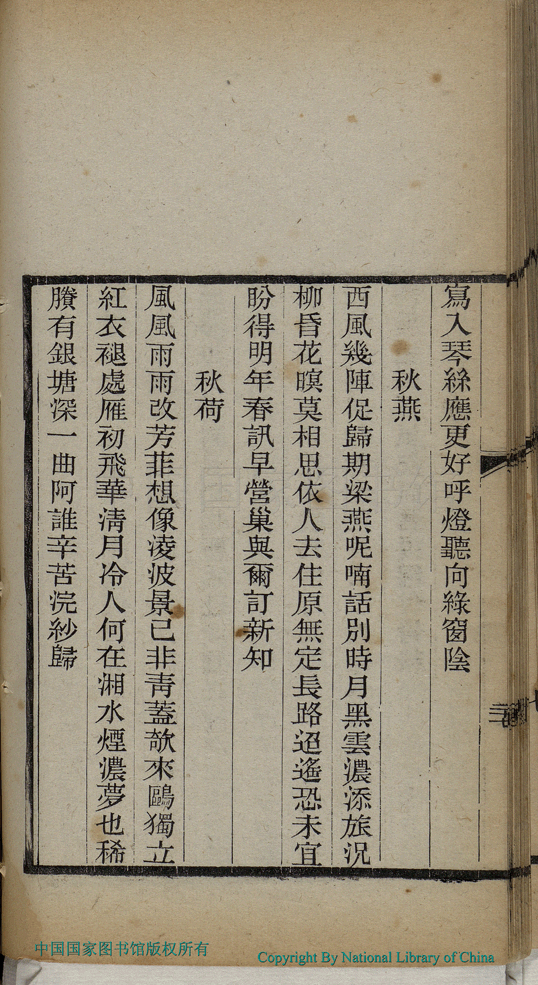 寫入琴絲應更好呼燈聽向綠窗陰
秋燕
西風幾陣促歸期梁燕呢喃話別時月黑雲濃添旅況
柳昏花暝莫相思依人去住原無定長路迢遙恐未宜
盼得明年春訊早營巢與爾訂新知
秋荷
風風雨雨改芳菲想像凌波景已非靑蓋欹來鷗獨立
紅衣褪處雁初飛華淸月冷人何在湘水煙濃夢也稀
賸有銀塘深一曲阿誰辛苦浣紗歸
中国国家图书馆版权所有
Copyright By National Library of China